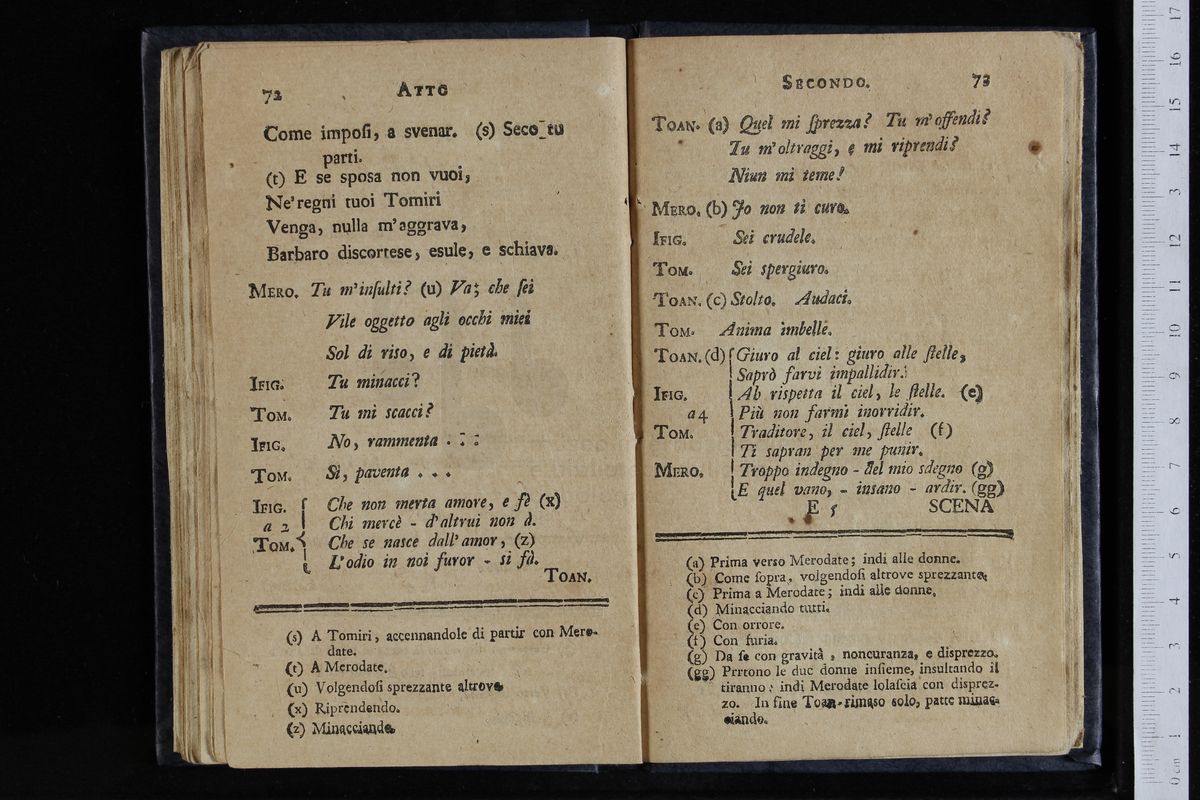 72 ATTO
Come imposi, a svenar. (s) Seco tu
parti.
(t) E se sposa non vuoi,
Ne' regni tuoi Tomiri
Venga, nulla m'aggrava,
Barbaro discortese, esule, e schiava.
MERO. Tu m'inſulti? (u) Va; che ſei
Vile oggetto agli occhi miei
Sol di riso, e di pietà.
IFIG. Tu minacci?
TOM. Tu mi scacci?
IFIG. No, rammenta . . .
TOM. Sì, paventa . . .
IFIG. Che non merta amore, e fè (x)
a 2 Chi mercè - d'altrui non à.
TOM. Che se nasce dall' amor, (z)
L'odio in noi furor - si fà.
TOAN.
(s) A Tomiri, accennandole di partir con Mero-
date.
(t) A Merodate.
(u) Volgendoſi sprezzante altrove
(x) Riprendendo.
(z) Minacciando.
SECONDO. 73
TOAN. (a) Quel mi ſprezza? Tu m'offendi?
Tu m'oltraggi, e mi riprendi?
Niun mi teme!
MERO. (b) Jo non ti curo.
IFIG. Sei crudele.
TOM. Sei spergiuro.
TOAN. (c) Stolto. Audaci.
TOM. Anima imbelle.
TOAN. (d) Giuro al ciel: giuro alle ſtelle,
Saprò farvi impallidir.
IFIG. Ah rispetta il ciel, le ſtelle. (e)
a 4 Più non farmi inorridir.
TOM. Traditore, il ciel, ſtelle (f)
Ti sapran per me punir.
MERO. Troppo indegno - del mio sdegno (g)
E quel vano, - insano - ardir. (gg)
E 5 SCENA
(a) Prima verso Merodate; indi alle donne.
(b) Come ſopra, volgendoſi altrove sprezzante.
(c) Prima a Merodate; indi alle donne.
(d) Minacciando tutti.
(e) Con orrore.
(f) Con furia.
(g) Da ſe con gravità, noncuranza, e disprezzo.
(gg) Prrtono le due donne inſieme, insultando il
tiranno: indi Merodate lolaſcia con disprez-
zo. In fine Toan rimaso solo, patte minac-
ciando.